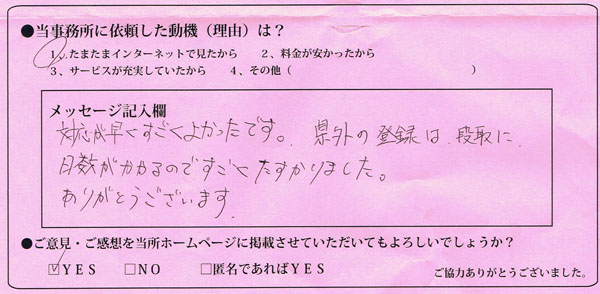 ●当事務所に依頼した動機（理由）は？
1、たまたまインターネットで見たから　2、料金が安かったから
3、サービスが充実していたから　4、その他（　　　　　　　　　　　　）
メッセージ記入欄
対応が早くすごくよかったです。県外の登録は、段取に
日数がかかるのですごくたすかりました。
ありがとうございます
●ご意見・ご感想を当所ホームページに掲載させていただいてもよろしいでしょうか？
☑YES　□NO　□匿名であればYES
ご協力ありがとうございました。